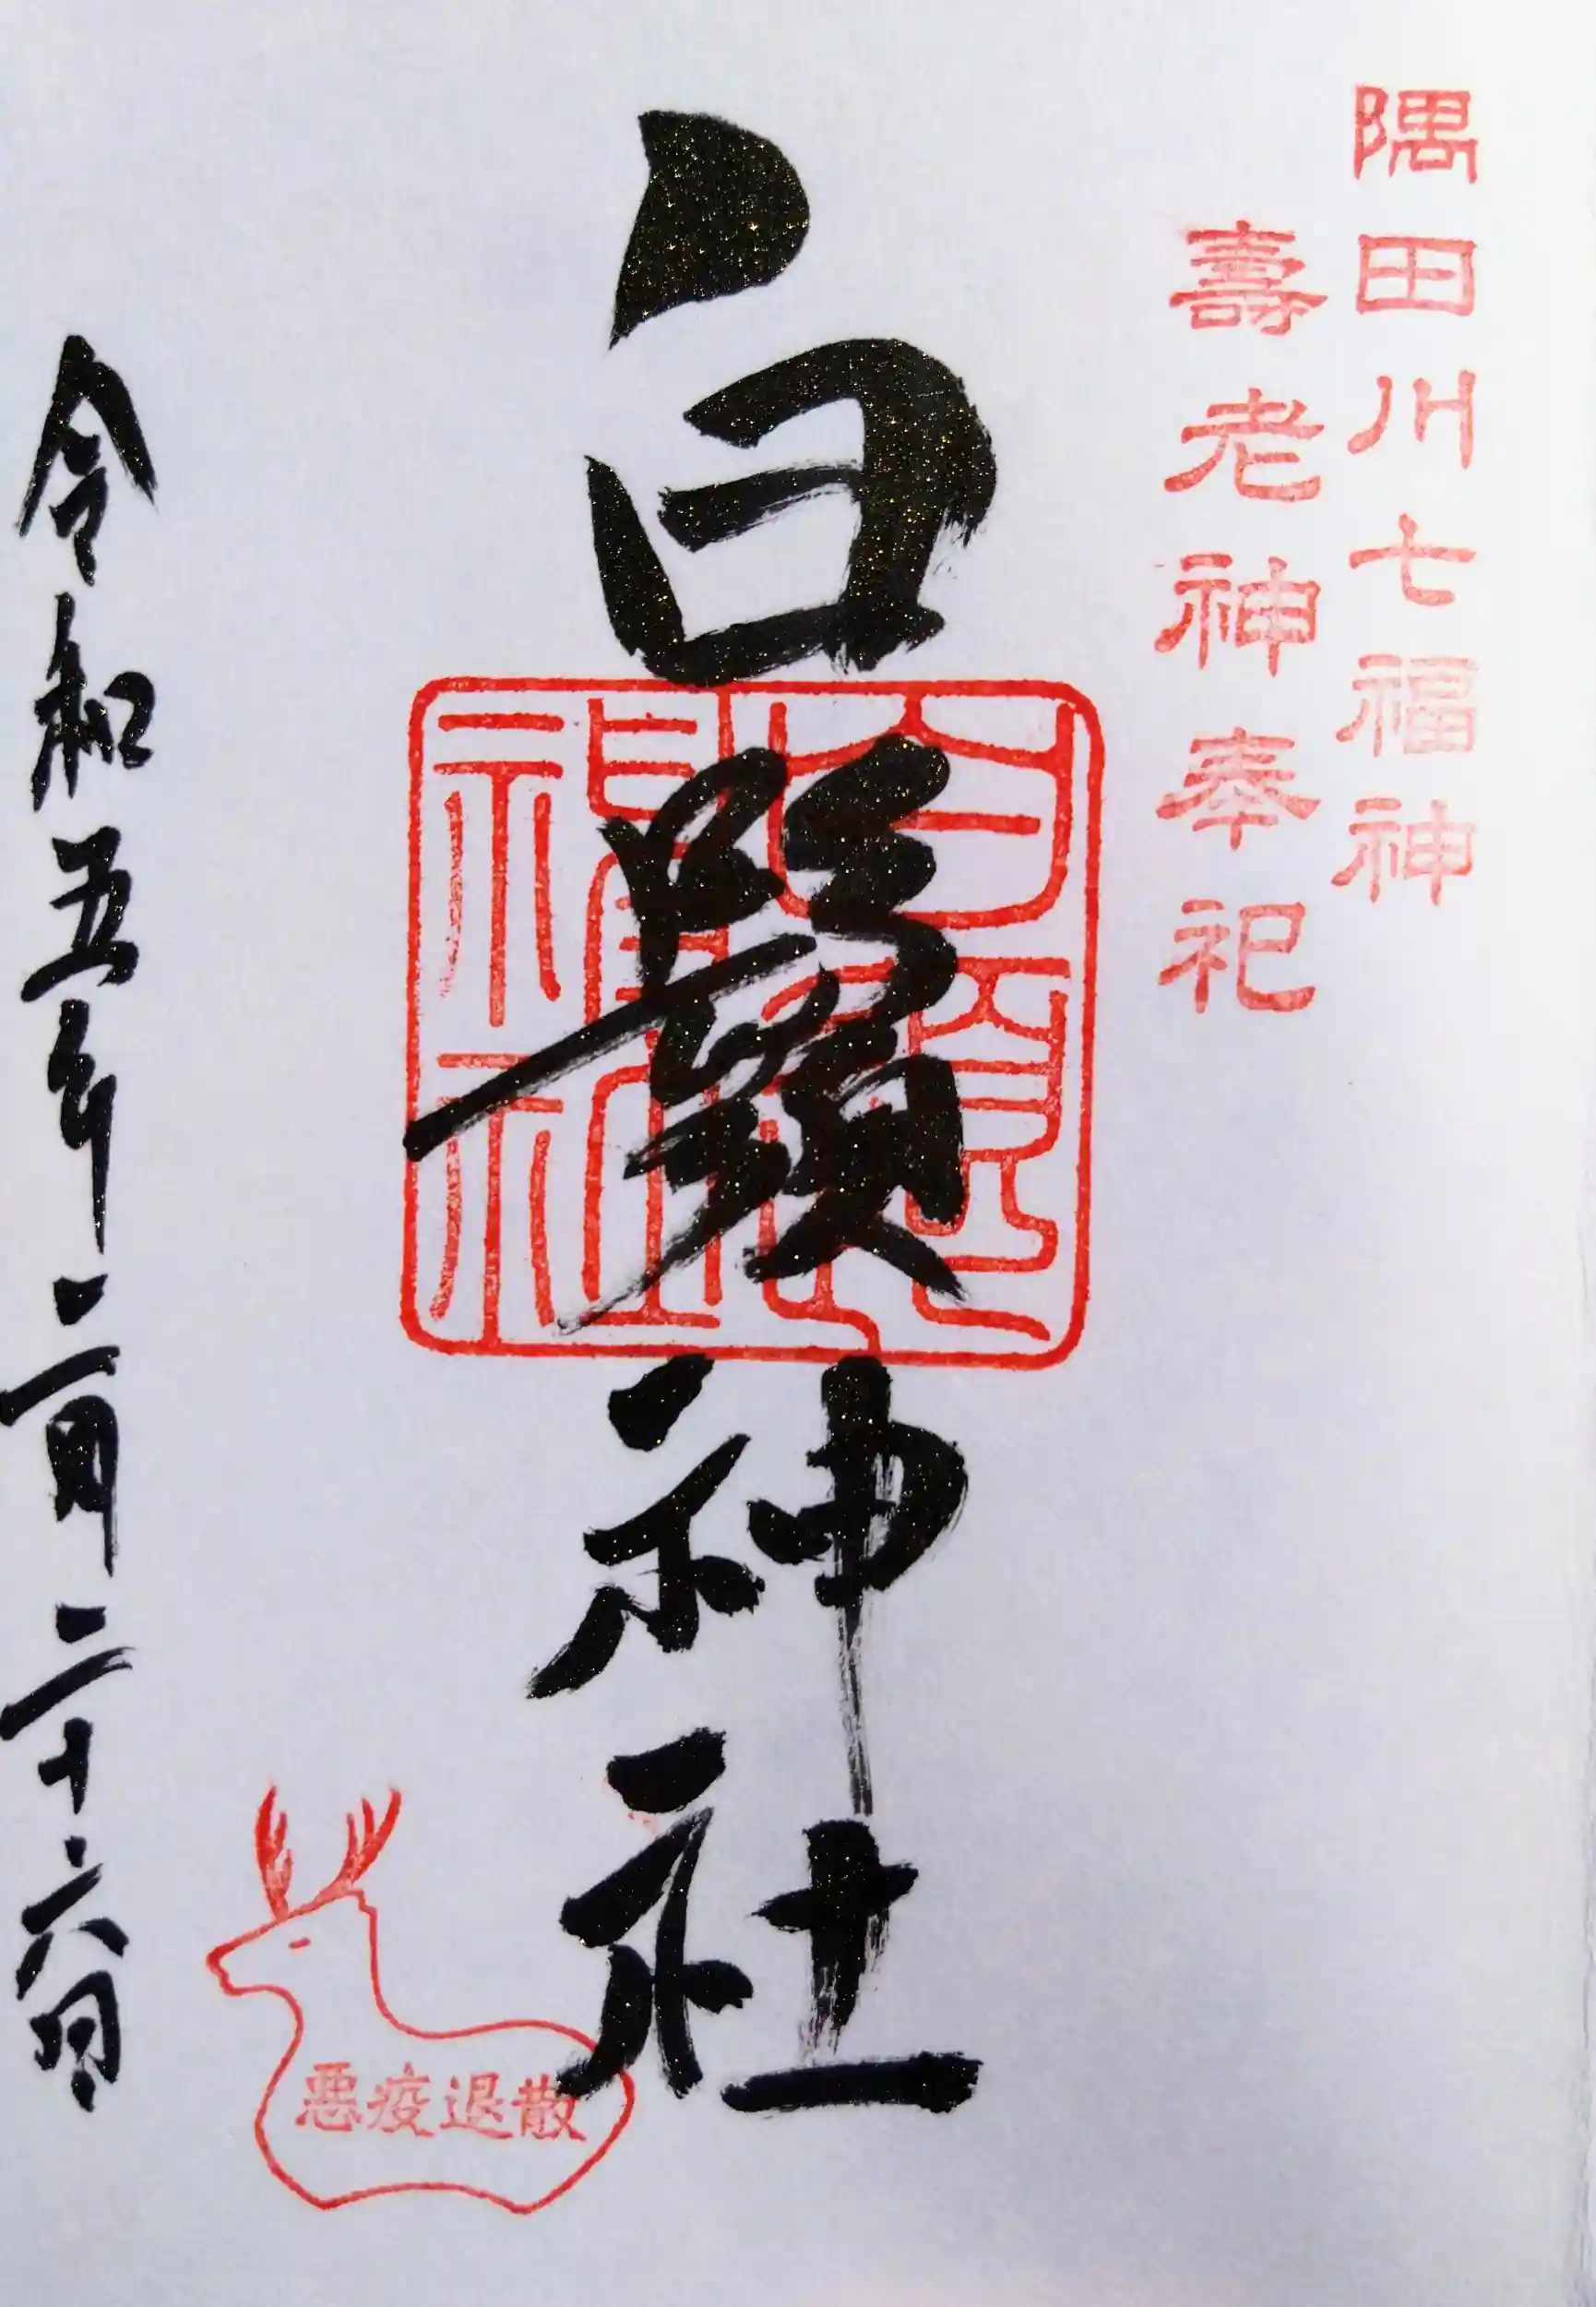 隅田川七福神
壽老神奉祀
白鬚神社
白鬚
神社
令和五年二月二十六日
悪疫退散